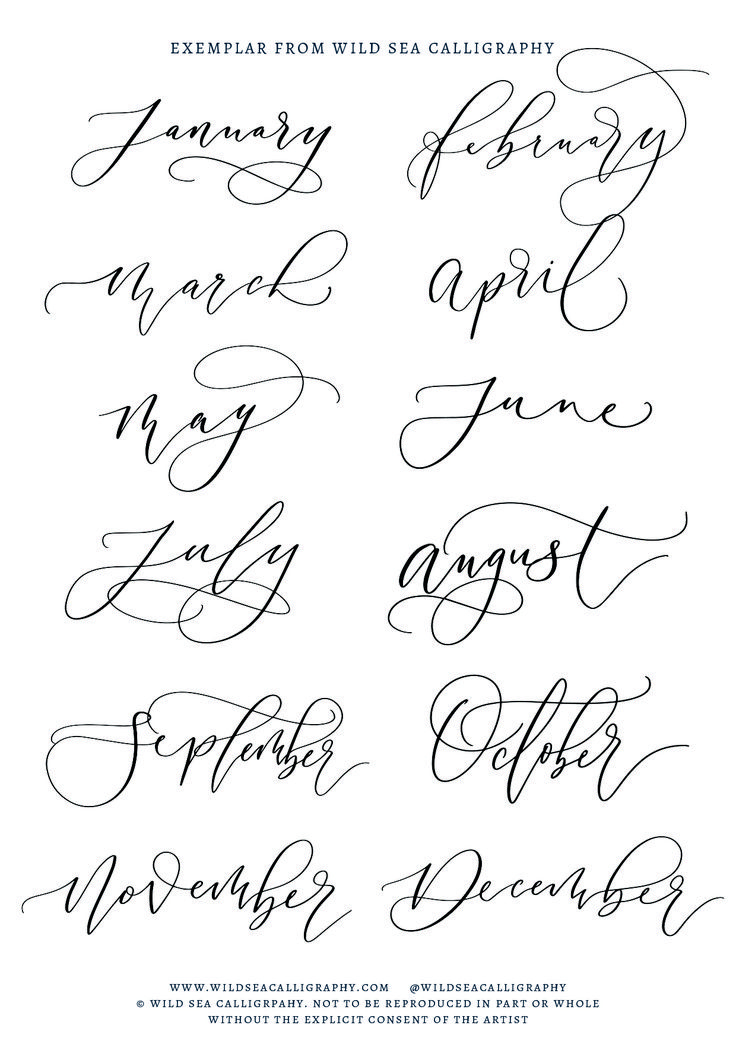 EXEMPLAR FROM WILD SEA CALLIGRAPHY
January february
March april
May June
July august
September October
November December
WWW.WILDSEACALLIGRAPHY.COM @WILDSEACALLIGRAPHY
© WILD SEA CALLIGRPAHY. NOT TO BE REPRODUCED IN PART OR WHOLE
WITHOUT THE EXPLICIT CONSENT OF THE ARTIST